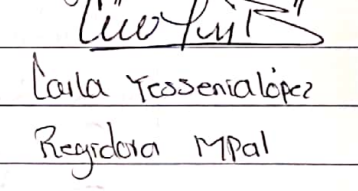 Carla Yessenia López
Regidora MPal